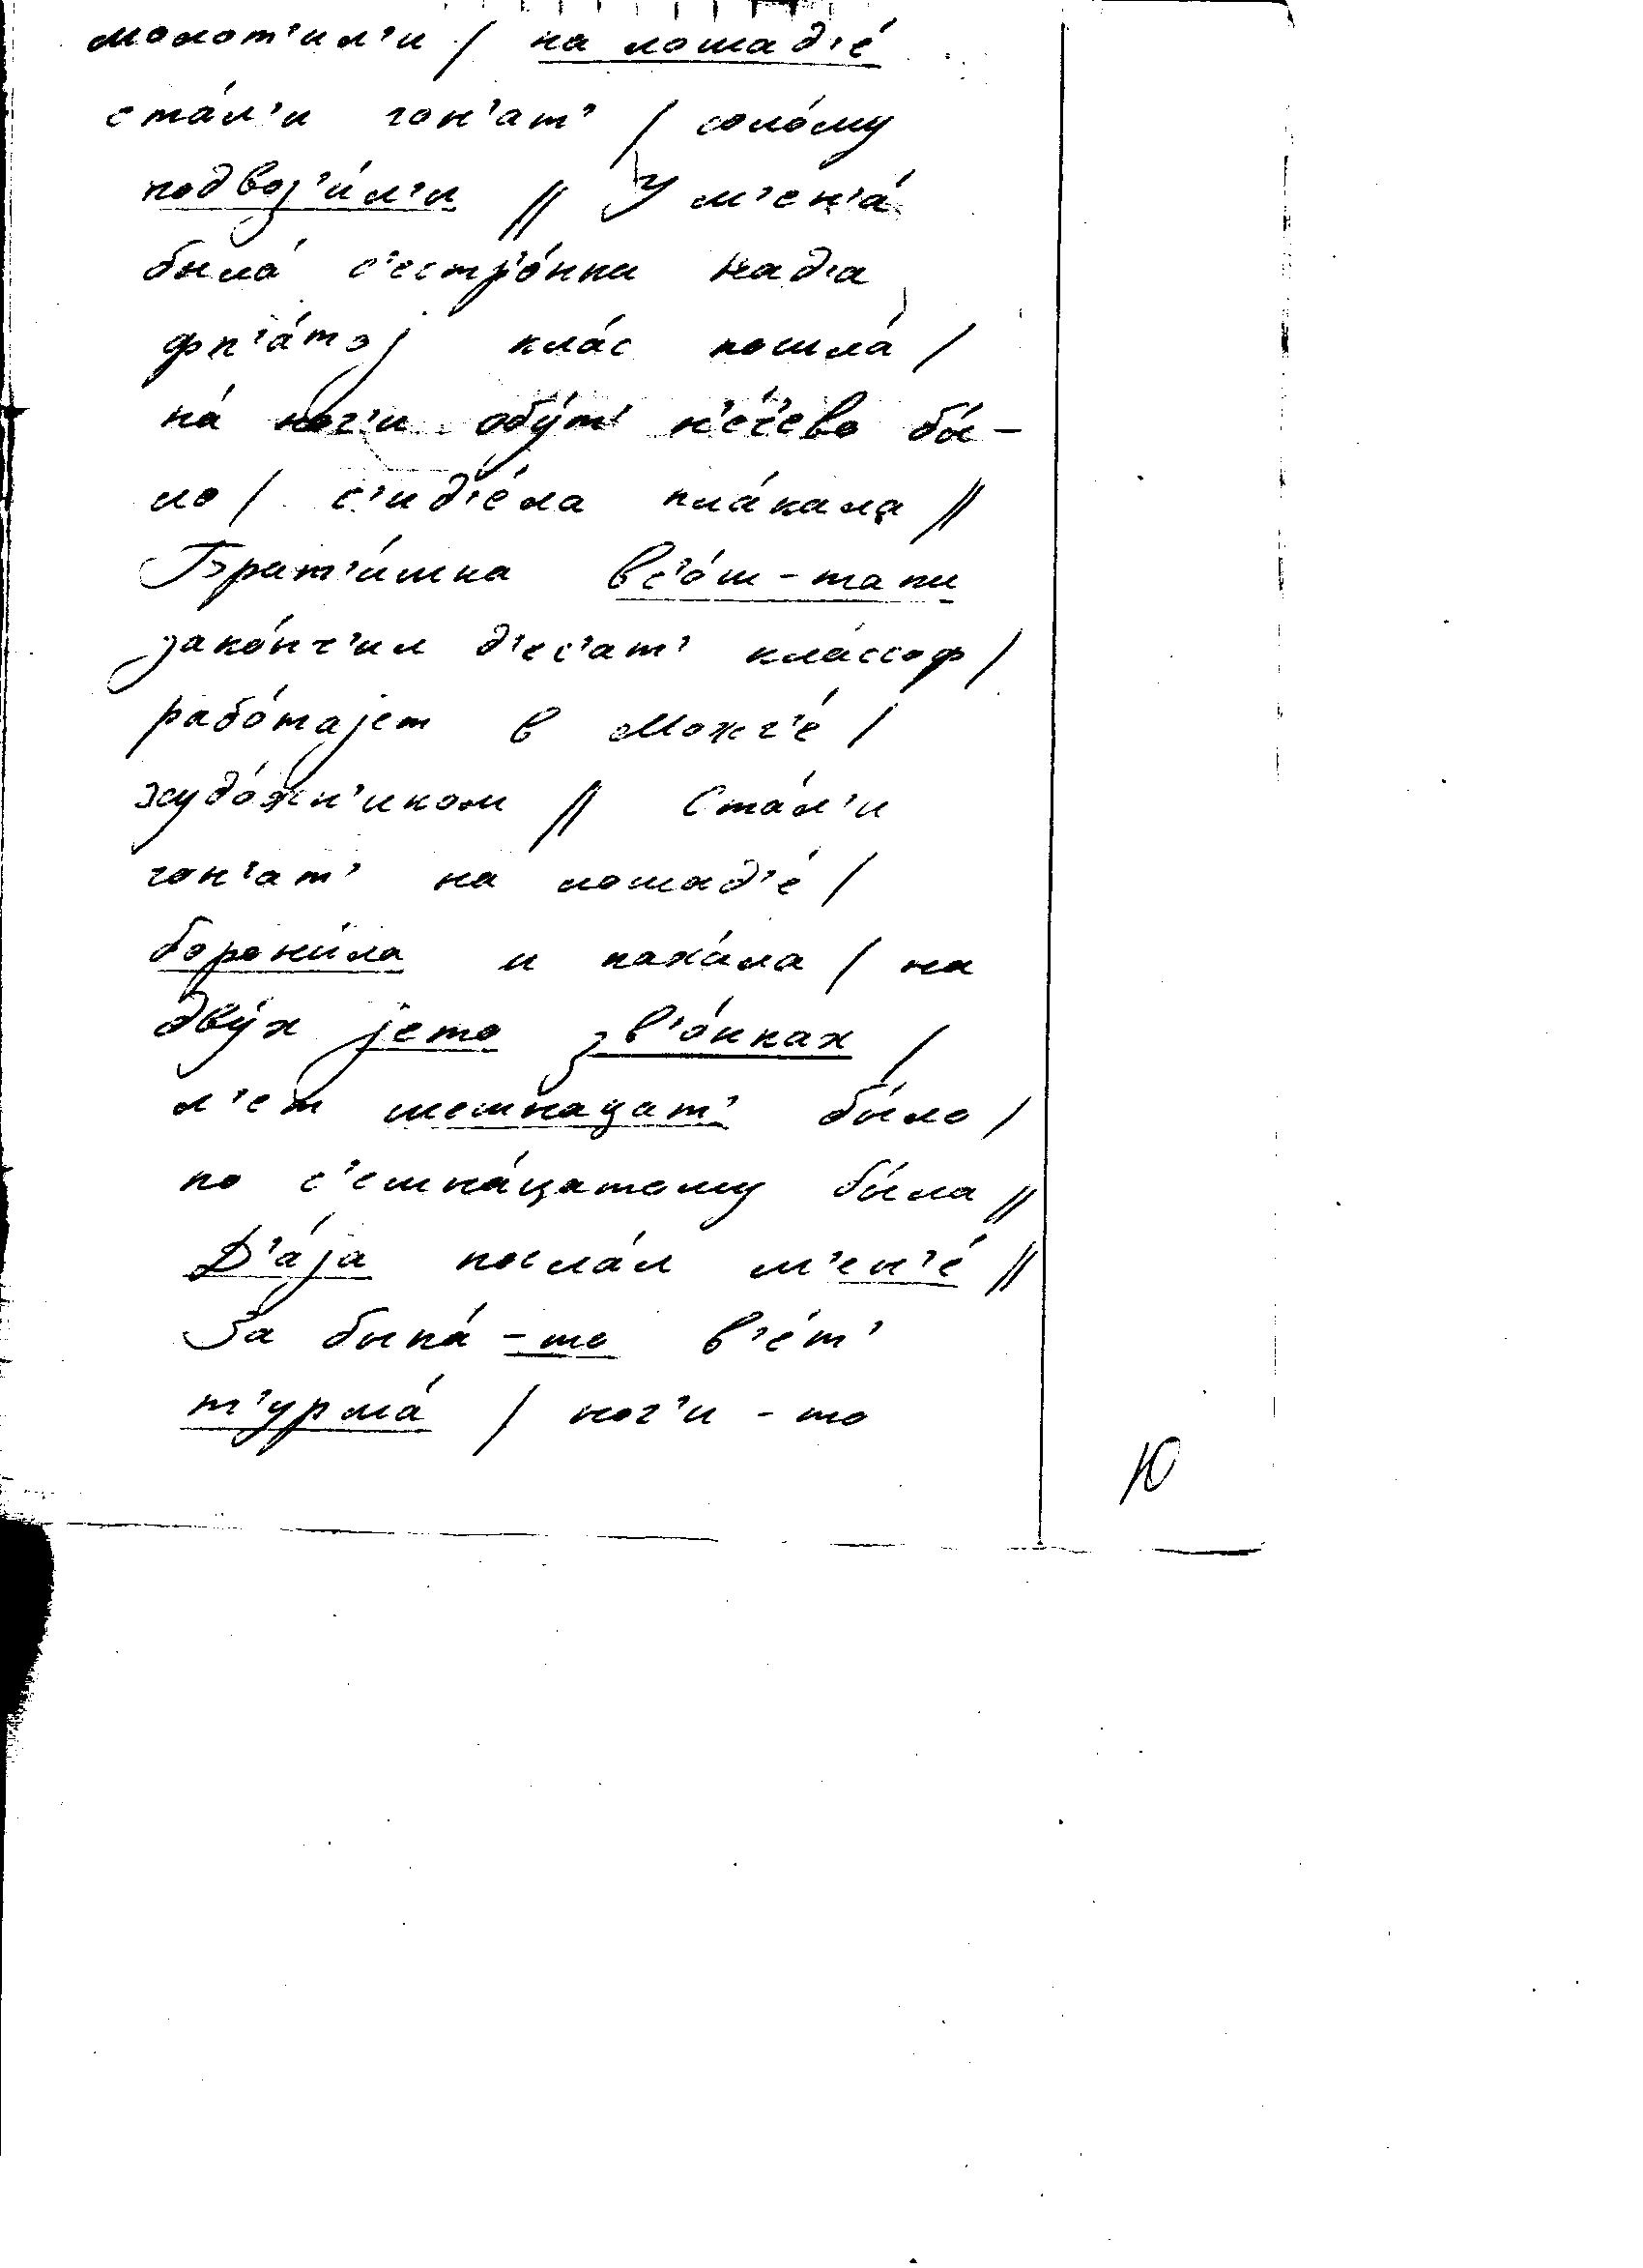 молот'ил'и / на лошад'е́
ста́л'и гон'ат' / соло́му
подвоз'и́л'и // У м'ен'а́
была́ с'естр'о́нка Над'а
фп'а́тэj кла́с пошла́ /
на́ ног'и обу́т' н'е́ч'ево бы́-
ло / с'ид'е́ла пла́кала //
Брат'и́шка вс'о́ш-таки
зако́нч'ил д'ес'ат' кла́ссоф /
рабо́таjет в Можг'е́ /
худо́жн'иком // Ста́л'и
гон'ат' на лошад'е́ /
борони́ла и паха́ла / на
дву́х jето зв'о́нках /
л'ет шешнацат' бы́ло /
по с'емна́цатому бы́ла //
Д'а́jа посла́л м'ен'е́ //
За быка́-то в'е́т'
т'урма́ / ног'и-то
Ю